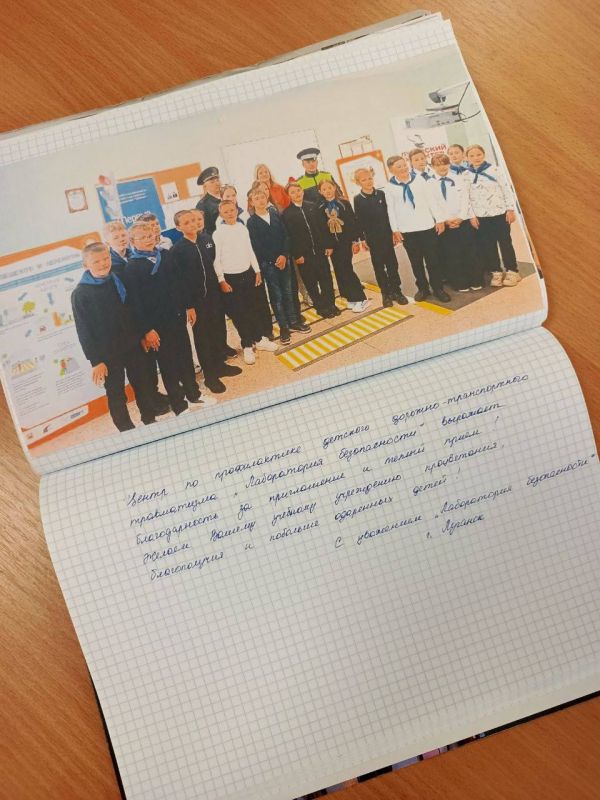 Перв
СКИЙ
Центр по профилактике детского дорожно-транспортного
травматизма „Лаборатория безопасности" выражает
благодарность за приглашение и теплый прием!
Желаем Вашему учебному учреждению процветания,
благополучия и побольше одаренных детей!
С уважением „Лаборатория безопасности"
г. Луганск